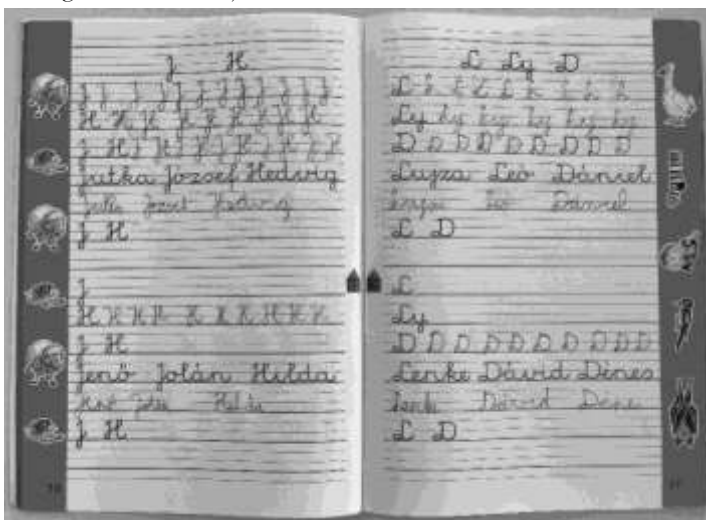 J H
J J J J J J J J J J J
H H H H H H H H H
J H J H J H J H J H
Jutka József Hedvig
József Hedvig
J H
J
H H H H H H H H H H
J H
Jenő Jolán Hilda
Hilda
J H
L Ly D
L L L L L L L L L
Ly Ly Ly Ly Ly Ly Ly
D D D D D D D D
Lujza Leó Dániel
Leó Dániel
L D
L
Ly
D D D D D D D D D D
Lenke Dávid Dénes
Lenke Dávid
L D